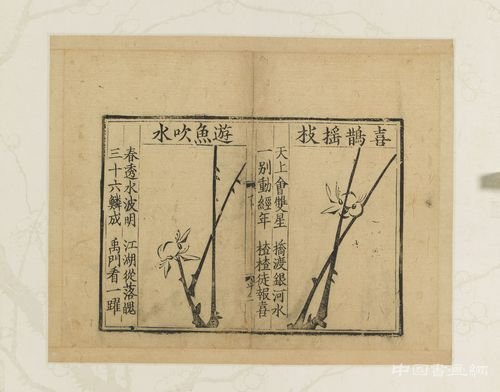 喜鵲搖枝
天上會雙星 橋渡銀河水
一别動經年 楂楂徒報喜
遊魚吹水
春透水波明 江湖從落魄
三十六鱗成 禹門看一躍
中国書画網